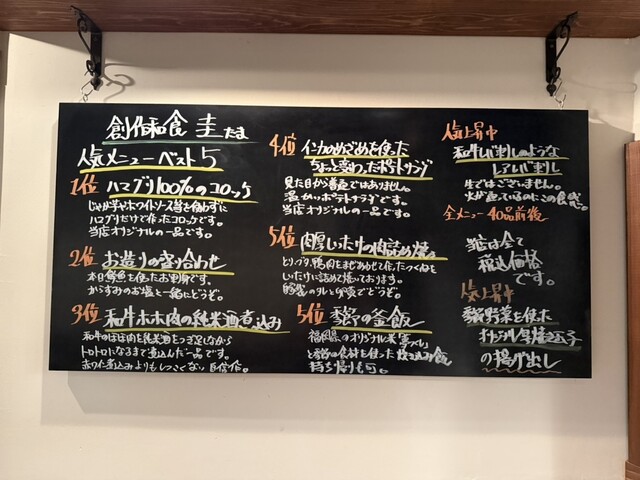 創作和食 圭 たま
人気メニューベスト5
1位 ハマグリ100%のコロッケ
じゃが芋やホワイトソース等を使わずに
ハマグリだけで作ったコロッケです。
当店オリジナルの一品です。
2位 お造りの盛り合わせ
本日鮮魚を使ったお刺身です。
からすみのお塩と一緒にどうぞ。
3位 和牛ホホ肉の純米酒煮込み
和牛のほほ肉を純米酒をつぎ足しながら
トロトロになるまで煮込んだ一品です。
赤ワイン煮込みよりもしつこくない
4位 インカのめざめを使った
ちょっと変わったポテトサラダ
見た目から普通ではありません。
温かいポテトサラダです。
当店オリジナルの一品です。
5位 肉厚しいたけの肉詰め焼き
とり、ブタ、鴨肉をまぜあわせて作ったつくねを
しいたけに詰めて焼いております。
のタレと卵黄でどうぞ。
5位 季節の釜飯
福岡県のオリジナル米
と季節の食材を使った炊き込み飯
持ち帰りも可。
人気上昇中
和牛レバ刺しのような
レアレバ刺し
生ではございません。
火が通っているのにこの食感
全メニュー 40品前後
当店は全て
税込価格
です。
人気上昇中
季節野菜を使った
オリジナル
の揚げ出し